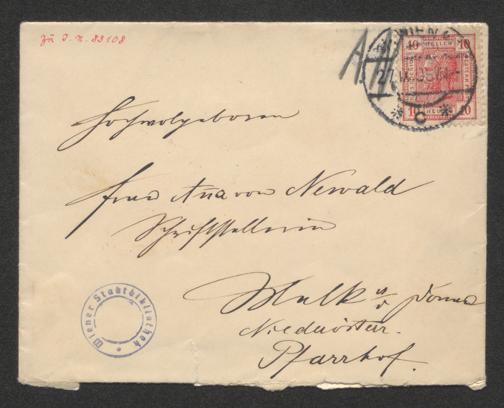 zu I. N. 83108
WIEN
10 HELLER 10
10 HELLER 10
Hochwolgeboren
Frau Ana von Newald
Schriftstellerin
Melk a/d Donau
Niederösterr.
Pfarrhof.
Wiener Stadtbibliothek